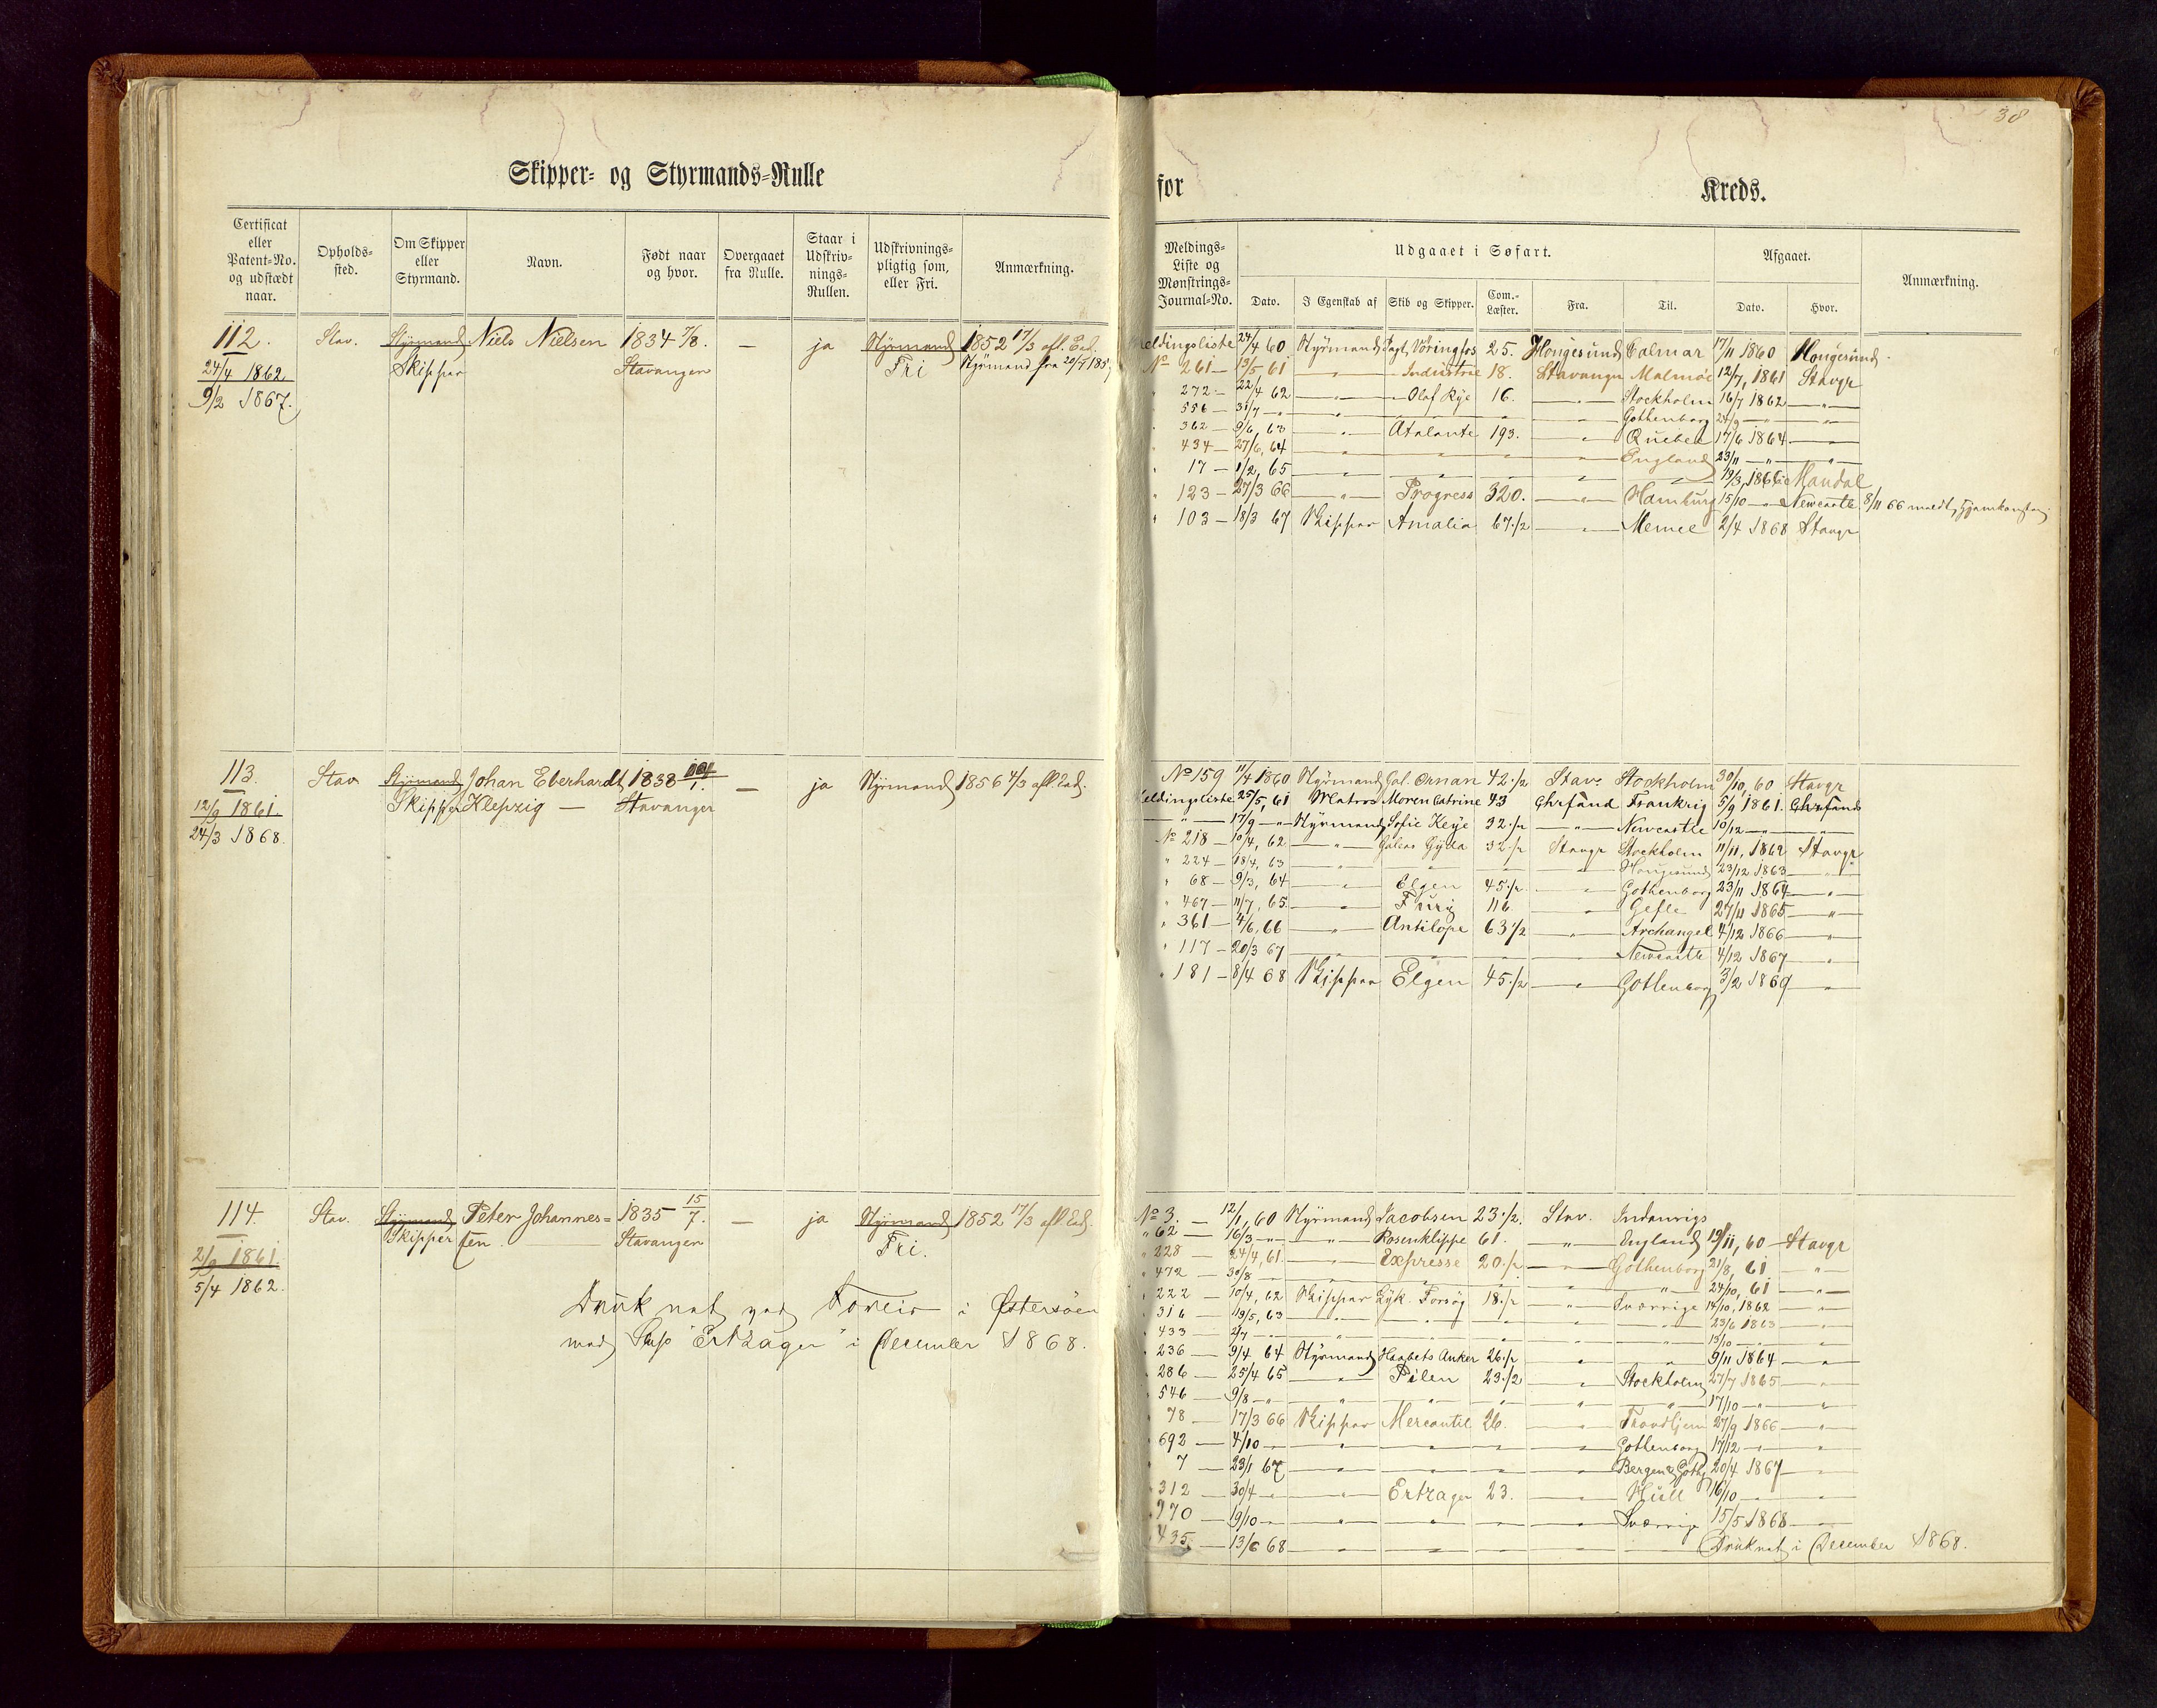 38
Skipper- og Styrmands-Rulle
for Kreds.
Certificat eller Patent-No. og udstædt naar.
Opholds-sted.
Om Skipper eller Styrmand.
Navn.
Født naar og hvor.
Overgaaet fra Rulle.
Staar i Udskriv-nings-Rullen.
Udskrivnings-pligtig som, eller Fri.
Anmærkning.
Meldings-Liste og Mønstrings-Journal-No.
Udgaaet i Søfart.
Dato.
I Egenskab af
Skib og Skipper.
Com.-Læster.
Fra.
Til.
Afgaaet.
Dato.
Hvor.
Anmærkning.
112. Stav. Styrmand Niels Nielsen 1834 7/8. — ja Styrmand 1852 17/3
24/4 1862 Skipper Stavanger Fri Styrmand fra
9/2 1867.
Meldingsliste 24/4 60 Styrmand Jagt, Vøringfos 25. Hougesund Calmar 17/11 1860 Hougesund
No 261 — 13/5 61 — " — Industrie 18. Stavanger Malmøe 12/7, 1861 Stavgr
" 272 — 22/4 62 — " — Olaf Rye 16. — " — Stockholm 16/7 1862 — " —
" 556 — 31/7 — " — " — " — Gothenborg 24/9 — " —
" 362 — 9/6, 63 — " — Atalante 193. — " — Quebec 17/6 1864 — " —
" 434 — 27/6, 64 — " — " — " — England 23/11 — " —
" 17 — 1/2, 65 — " — " — " — 19/3, 1866 Mandal
" 123 — 27/3 66 — " — Progress 320. — " — Hamburg 15/10 — " — Newcastle 8/11 66 meldt Hjemkomsten
" 103 — 18/3 67 Skipper Amalia 67 1/2 — " — Memel 2/4 1868 Stavgr
113. Stav. Styrmand Johan Eberhardt 1838 — ja Styrmand 1856 4/3
12/9 1861. Skipper Klepzig — Stavanger
24/3 1868.
No 159 11/4 1860 Styrmand Gal. Ornan 42 1/2 Stav. Stockholm 30/10, 60 Stavgr
Meldingsliste 25/5, 61 Matros Moren Catrine 43 Chrsand Frankrig 5/9 1861. Chrsand
— " — 17/9 — " — Styrmand Sofie Keye 32 1/2 — " — Newcastle 10/12 — " —
No 218 — 10/4, 62 — " — Galeas Gyda 32 1/2 Stavgr Stockholm 11/11, 1862 Stavgr
" 224 — 18/4, 63 — " — " — Hougesund 23/12 1863 — " —
" 68 — 9/3, 64 — " — Elgen 45 1/2 — " — Gothenborg 23/11 1864 — " —
" 467 — 11/7, 65 — " — 116. — " — Gefle 27/11 1865 — " —
" 361 — 4/6, 66 — " — Antilope 63 1/2 — " — Archangel 4/12 1866 — " —
" 117 — 20/3 67 — " — " — Newcastle 4/12 1867 — " —
" 181 — 8/4 68 Skipper Elgen 45 1/2 — " — Gothenborg 3/2 1869 — " —
114. Stav. Styrmand Peter Johannes= 1835 15/7. — ja Styrmand 1852 17/3
2/9 1861. Skipper sen. — Stavanger Fri.
5/4 1862.
Druknet ved Forlis i Østersøen
med Skip "Ertzager" i December 1868.
No 3. — 12/1, 60 Styrmand Jacobsen 23 1/2. Stav. Indenrigs
" 62 — 16/3 — " — " — Rosenklippe 61. — " — England 19/11, 60 — Stavgr
" 228 — 24/4, 61. — " — Expresse 20 1/2 — " — Gothenborg 21/8, 61 — " —
" 472 — 30/8 — " — " — 24/10, 61 — " —
" 222 — 10/4, 62 Skipper Lyk. Forsøg 18 1/2 — " — Sverrige 14/10, 1862 — " —
" 316 — 19/5, 63 — " — " — 23/6 1863 — " —
" 433 — 2/7 — " — " — 13/10 — " —
" 236 — 9/4 64 Styrmand Haabets Anker 26 1/2 — " — 9/11 1864 — " —
" 286 — 25/4 65 — " — Pilen 23 1/2 — " — Stockholm 27/7 1865 — " —
" 546 — 9/8 — " — " — " — 17/10 — " —
" 78 — 17/3 66 Skipper Mercantil 26. — " — Trondhjem 27/9 1866 — " —
" 692 — 4/10 — " — " — Gothenborg 17/12 — " —
" 7 — 23/1 67 — " — " — Bergen & Goth. 20/4 1867 — " —
" 312 — 30/4 — " — " — Ertzager 23. — " — Hull 16/10 — " —
" 970 — 19/10 — " — " — Sverrige 15/5 1868 — " —
" 435. — 13/6 68 — " — " — Druknet i December 1868.